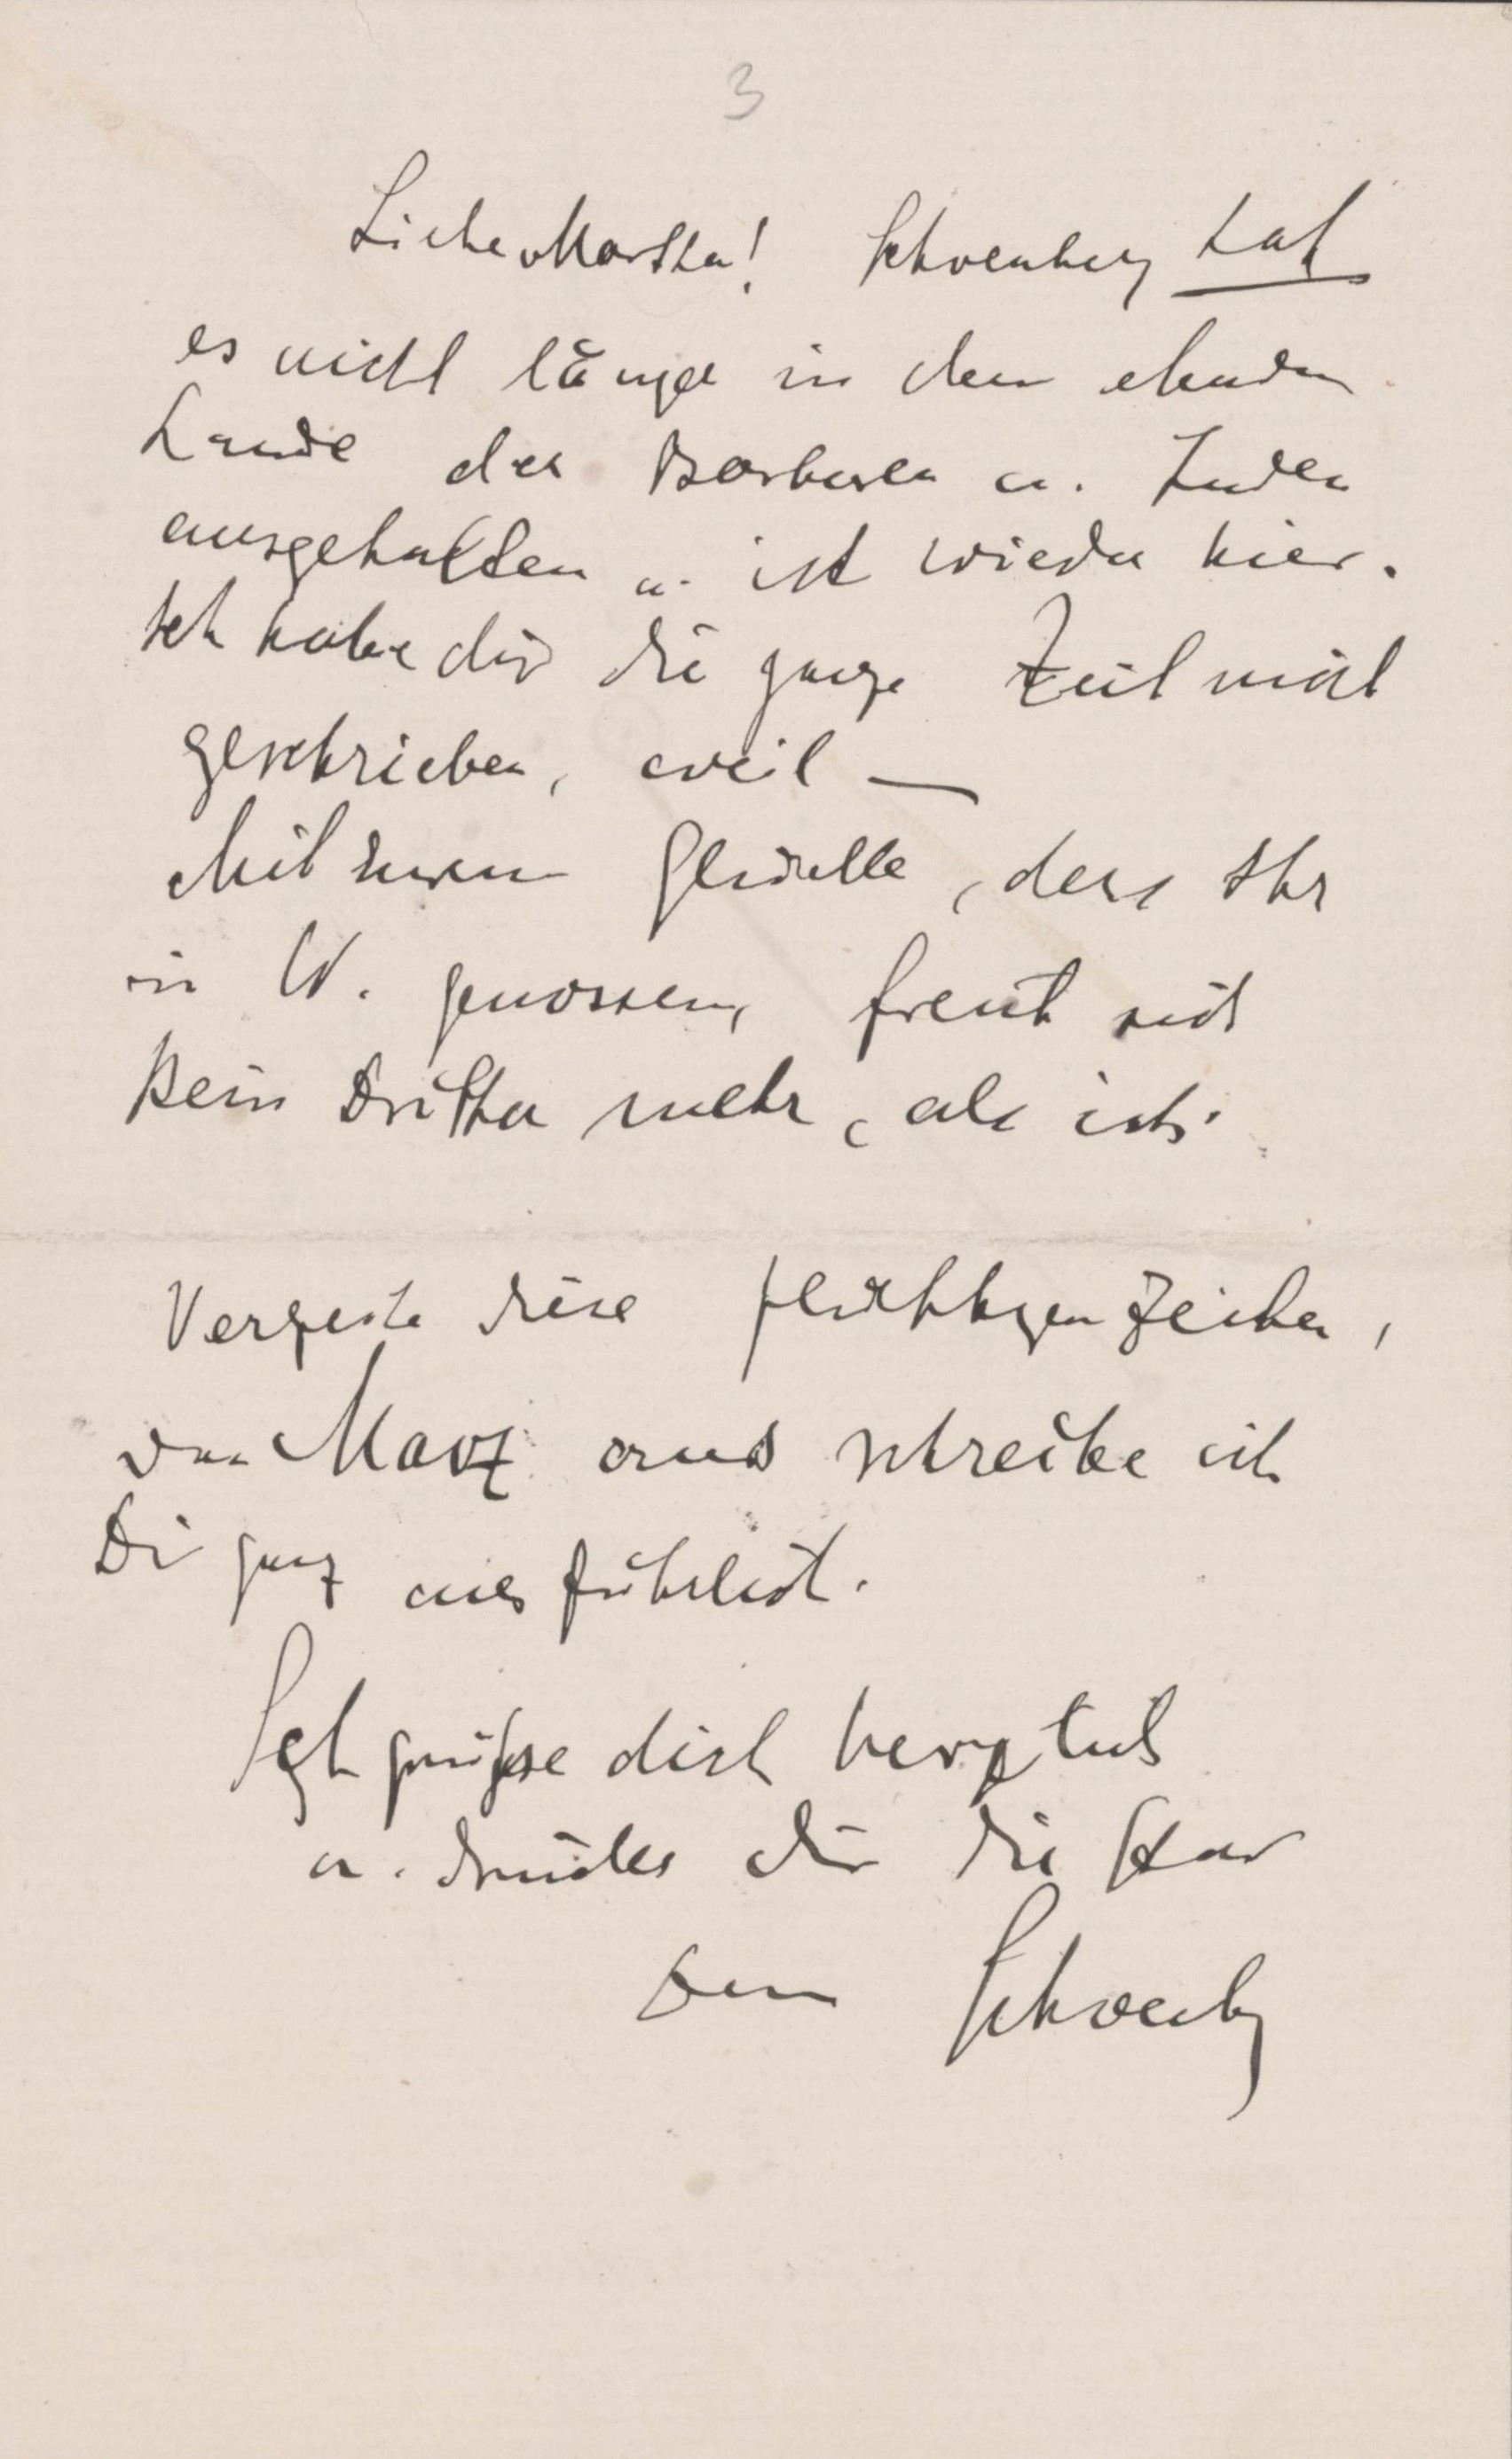 3
Liebe Martha! Schoenberg hat
es nicht länger in dem elenden
Lande der Barbaren u. Juden
ausgehalten u. ist wieder hier.
Ich habe dir die ganze Zeit nicht
geschrieben, weil —
Mit dem Glücke, dass Ihr
in W. genossen, freut sich
kein Dritter mehr, als ich.
Verzeihe diese flüchtigen Zeichen,
von aus schreibe ich
Dir ganz ausführlich.
Ich grüsse dich herzlich
u. drücke dir die
Dein Schoenberg